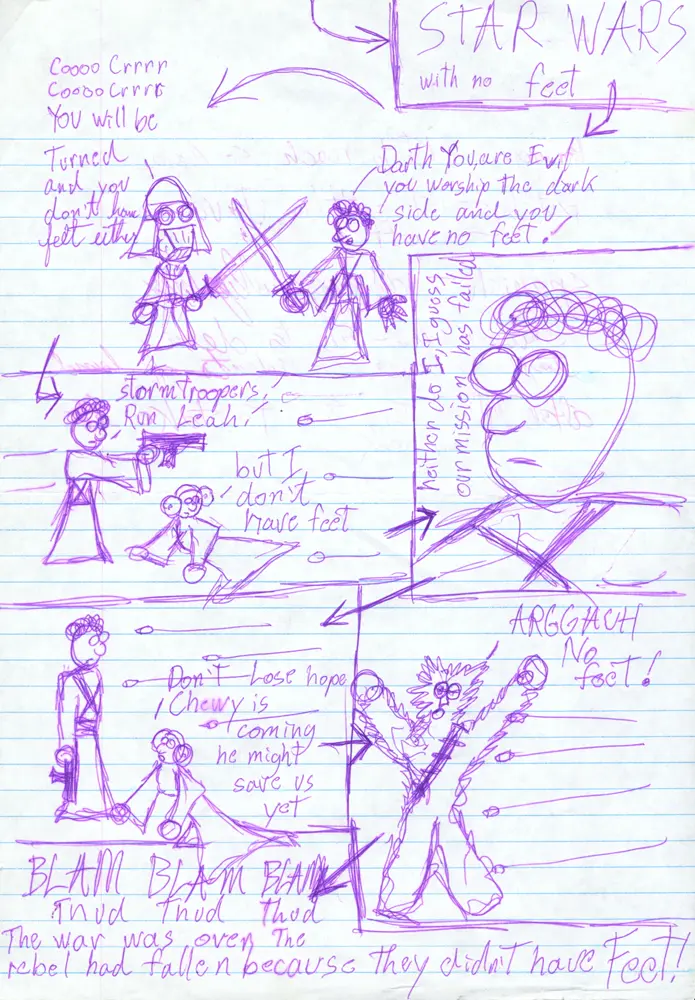 STAR WARS
with no feet
Darth You, are Evil
you worship the dark
side and you
have no feet!
Coooo Crrrr
Coooo Crrrr
You will be
Turned
and you
don't have
feet either
stormtroopers,
Run Leah!
but I
don't
have feet
neither do I, I guess
our mission has failed
Don't Lose hope
Chewy is
coming
he might
save us
yet
ARGGACH
No
feet!
BLAM BLAM BLAM
Thud Thud Thud
The war was over The
rebel had fallen because they didn't have Feet!